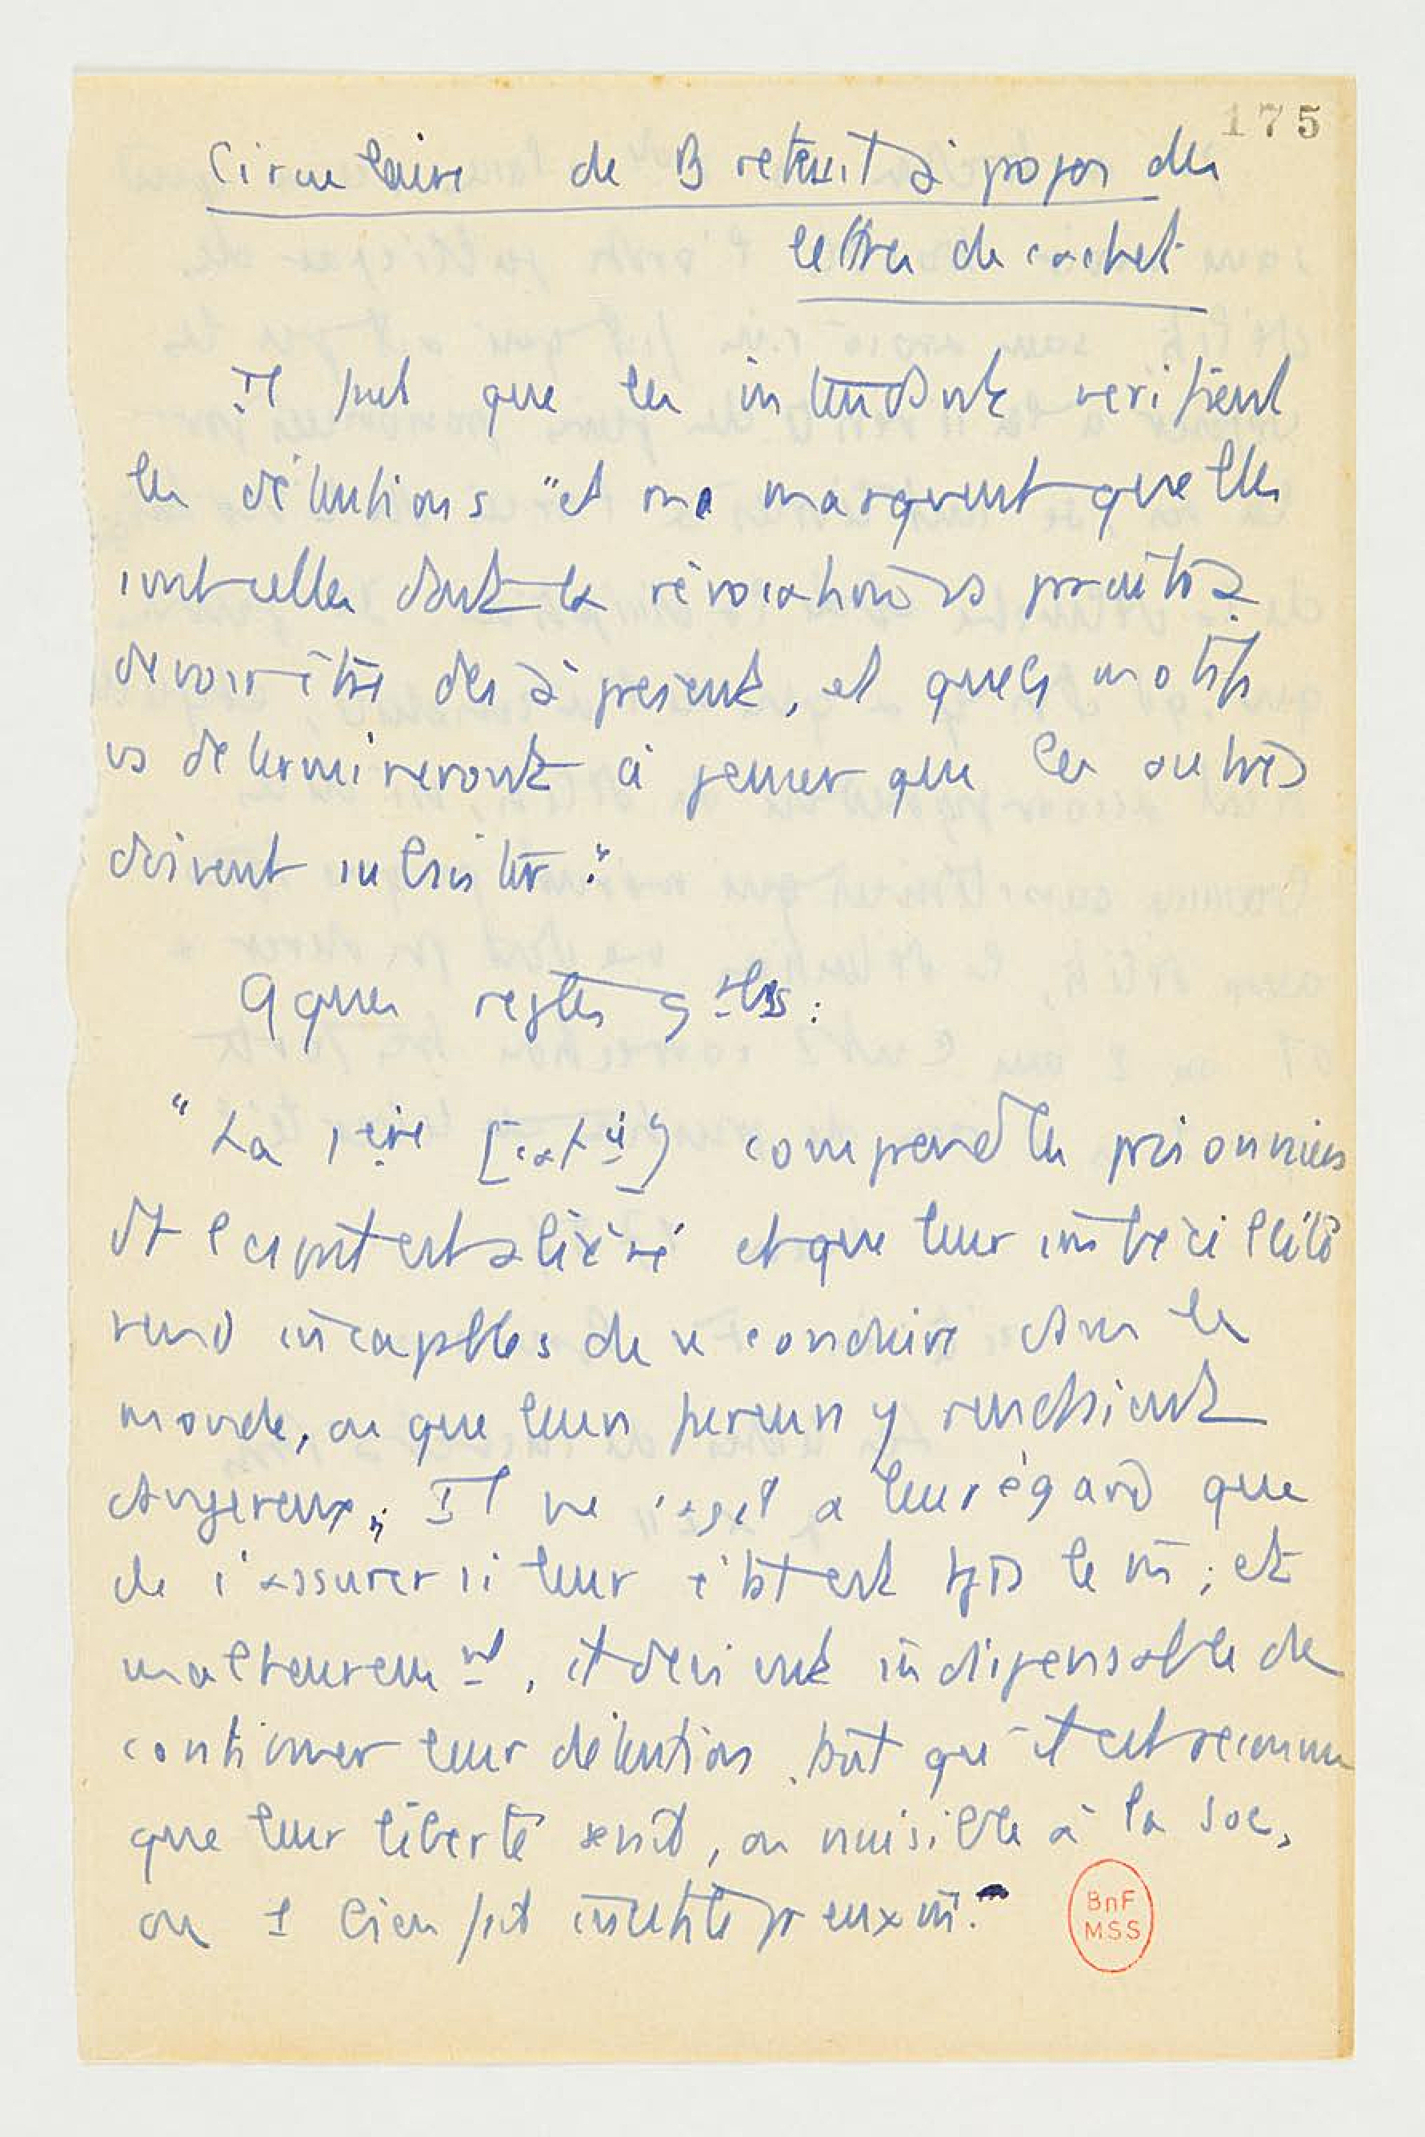 175
Circulaire de Breteuil à propos des
lettres de cachet
Il faut que les intendants vérifient
les détentions "et me marquent quelles
sont celles dont la révocation vs paraîtra
devoir être dès à présent, et quels motifs
vs détermineront à penser que les autres
doivent subsister."
Qques règles gales :
"La 1ère [catie] comprend les prisonniers
dt l'esprit est aliéné et que leur imbécillité
rend incapables de se conduire dans le
monde, ou que leurs fureurs y rendraient
dangereux. Il ne s'agit à leur égard que
de s'assurer si leur état est tjrs le m̄ ; et
malheureusemt, il devient indispensable de
continuer leur détention tant qu'il est reconnu
que leur liberté serait, ou nuisible à la soc,
ou 1 bienfait inutile pr eux m̄."
BnF
MSS